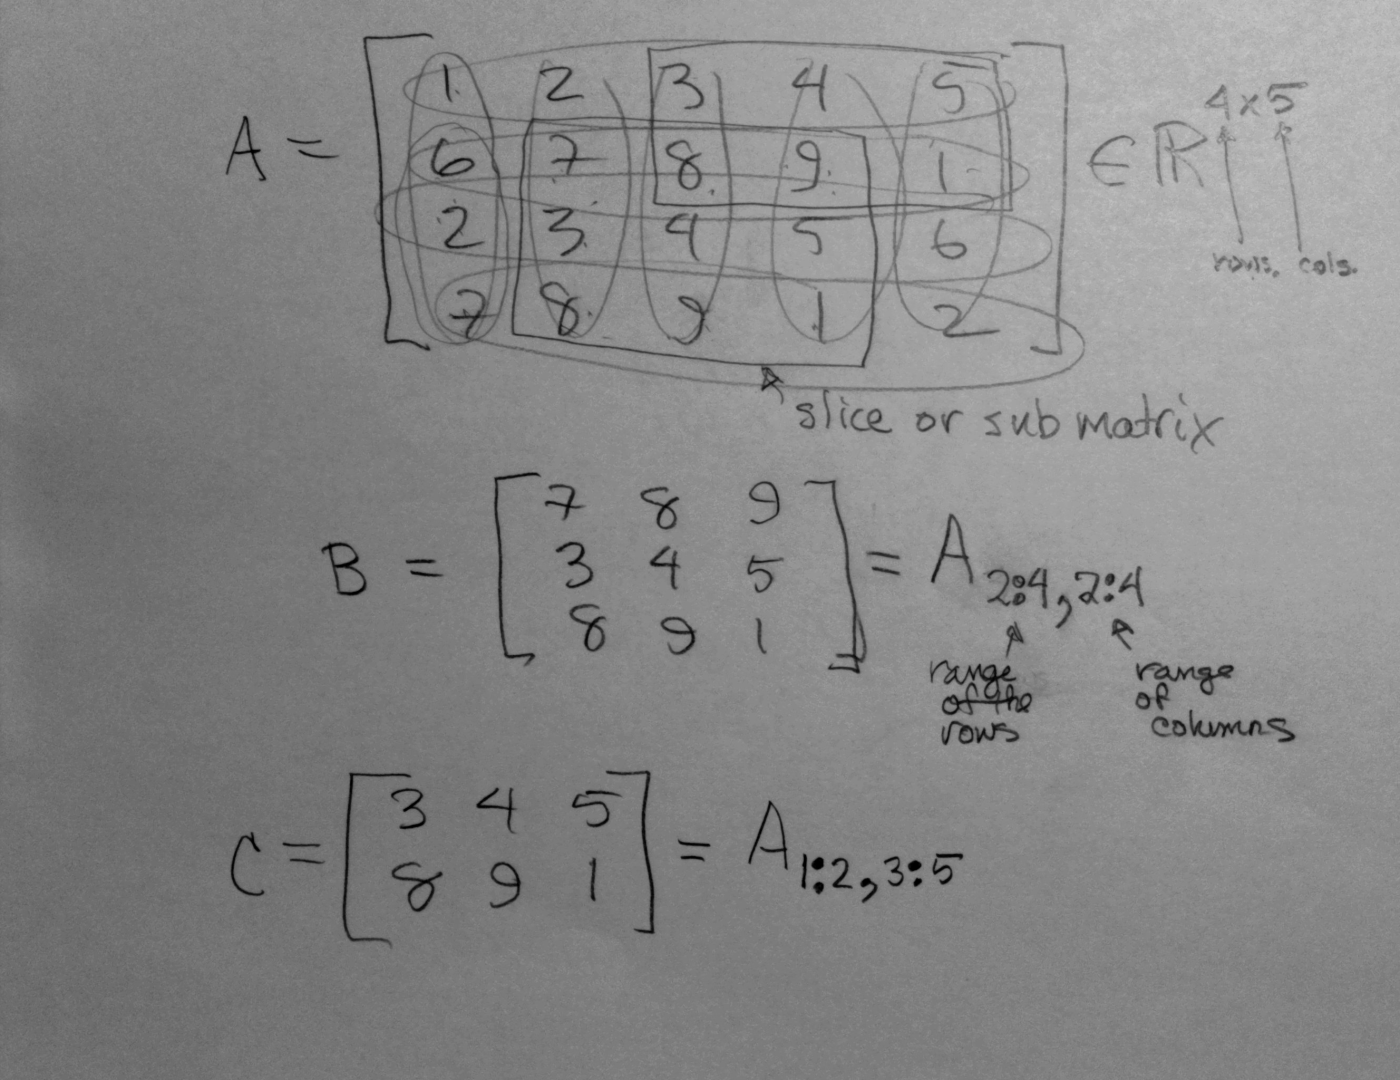 A = [ 1 2 3 4 5
6 7 8 9 1
2 3 4 5 6
7 8 9 1 2 ] ∈ ℝ 4×5
rows. cols.
slice or sub matrix
B = [ 7 8 9
3 4 5
8 9 1 ] = A 2:4, 2:4
range
of the
rows
range
of
columns
C = [ 3 4 5
8 9 1 ] = A 1:2, 3:5